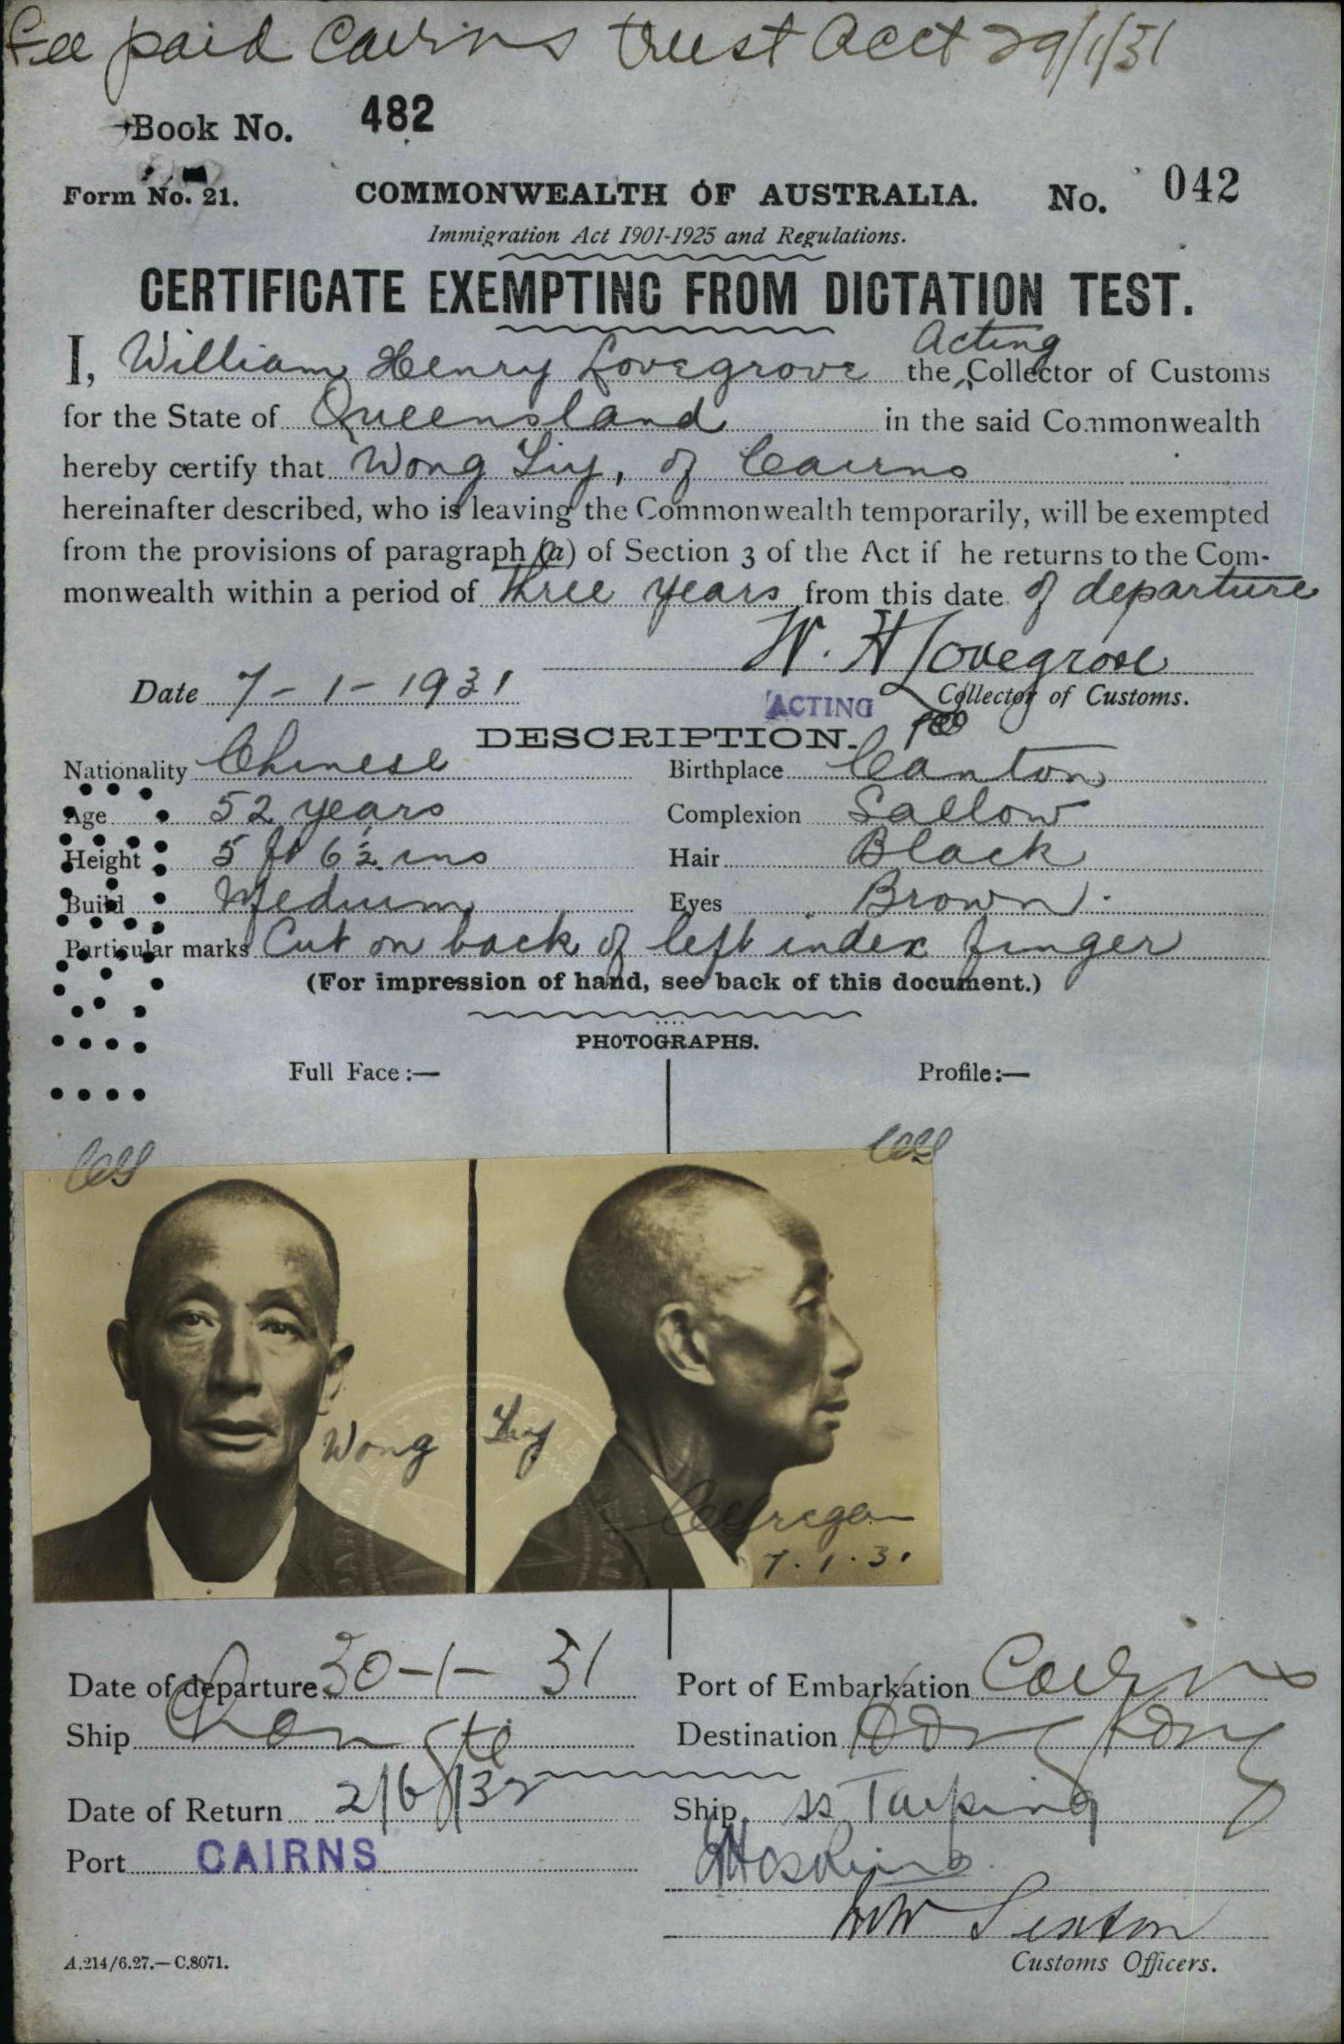 Fee paid Cairns trust acct 29/1/31
Book No. 482
Form No. 21. COMMONWEALTH OF AUSTRALIA. No. 042
Immigration Act 1901-1925 and Regulations.
CERTIFICATE EXEMPTING FROM DICTATION TEST.
Acting
I, William Henry Lovegrove the Collector of Customs
for the State of Queensland in the said Commonwealth
hereby certify that Wong Liy, of Cairns
hereinafter described, who is leaving the Commonwealth temporarily, will be exempted
from the provisions of paragraph (a) of Section 3 of the Act if he returns to the Com-
monwealth within a period of three years from this date of departure
W. H Lovegrove
Date 7-1-1931 ACTING Collector of Customs.
DESCRIPTION.
Nationality Chinese Birthplace Canton
Age 52 years Complexion Sallow
Height 5 ft 6½ ins Hair Black
Build Medium Eyes Brown.
Particular marks Cut on back of left index finger
(For impression of hand, see back of this document.)
PHOTOGRAPHS.
Full Face:— Profile:—
Wong Liy
7.1.31
Date of departure 30-1-31 Port of Embarkation Cairns
Ship Changte Destination Hong Kong
Date of Return 2/6/32 Ship ss Taiping
Port CAIRNS Hoskins
Sexton
A.214/6.27.—C.8071. Customs Officers.